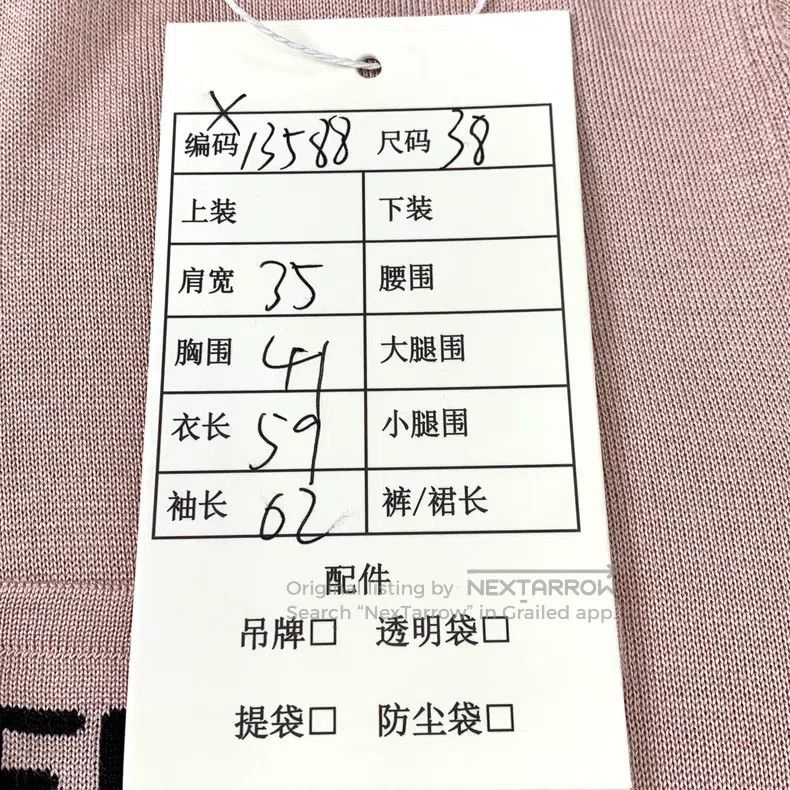 X
编码 13588 尺码 38
上装 下装
肩宽 35 腰围
胸围 41 大腿围
衣长 59 小腿围
袖长 62 裤/裙长
配件
Original listing by NEXTARROW
Search “NexTarrow” in Grailed app.
吊牌□ 透明袋□
提袋□ 防尘袋□